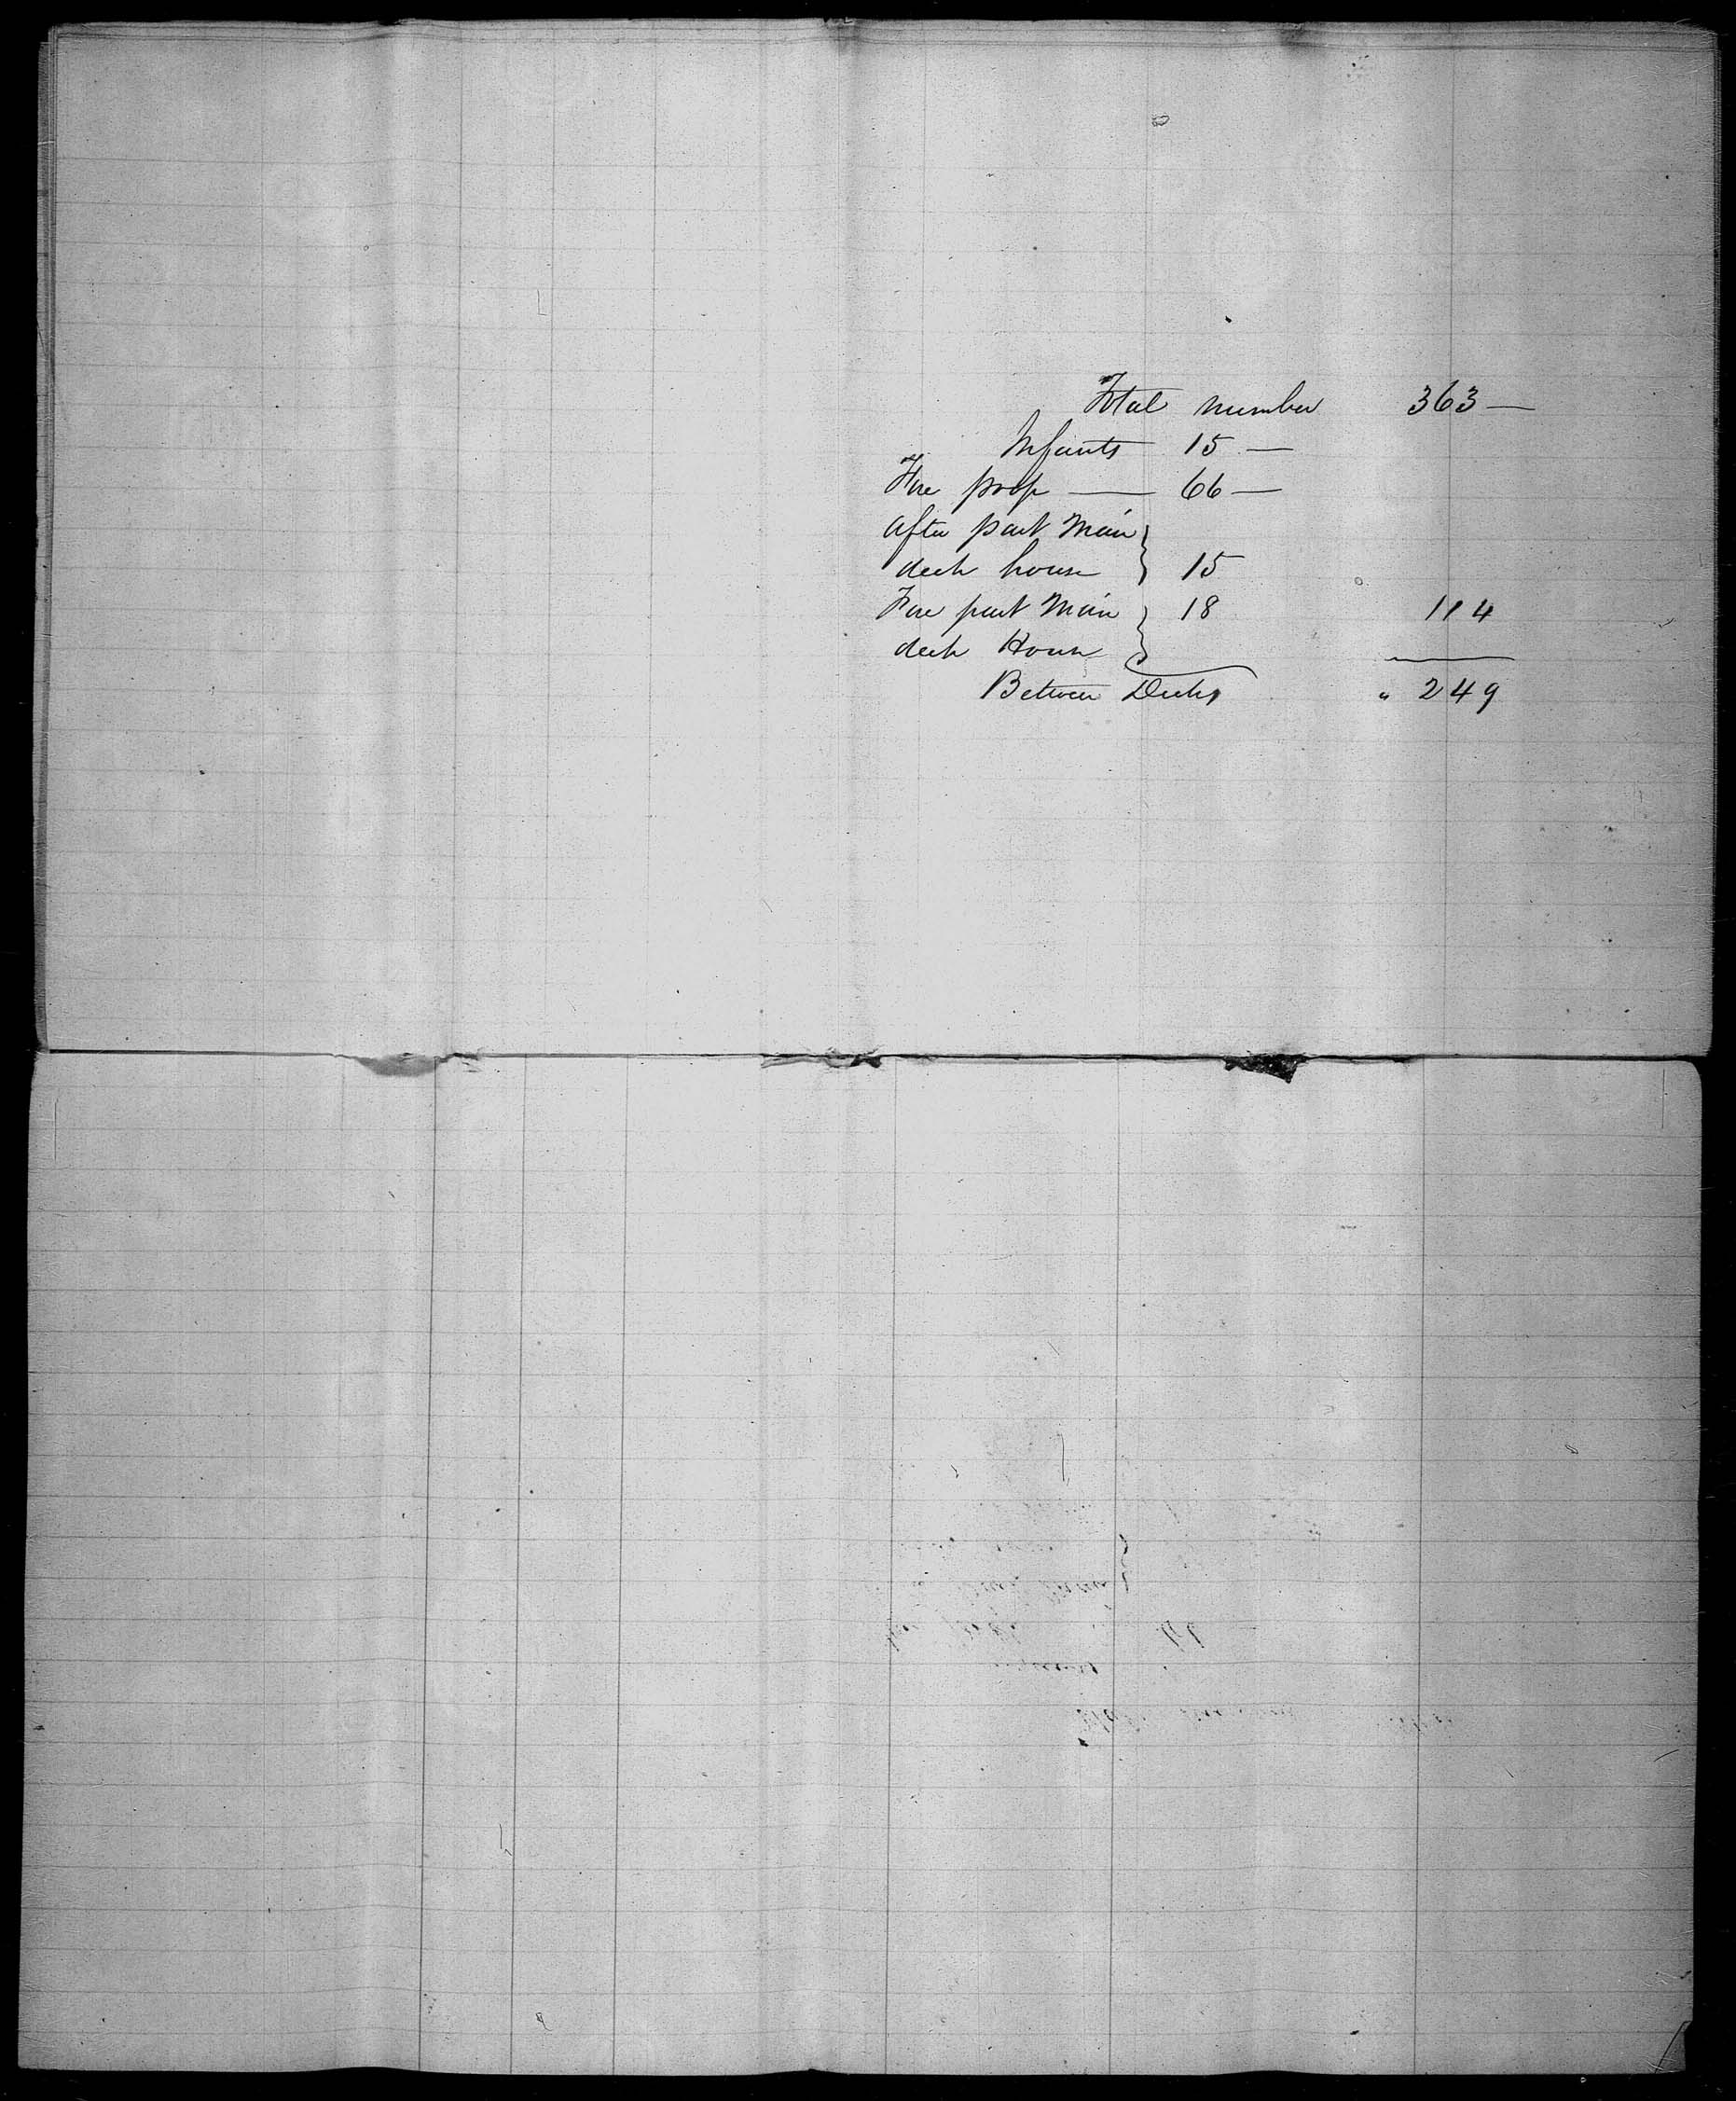 Total number 363 —
Infants 15 —
Fore poop — 66 —
After part Main
deck house } 15
Fore part Main } 18 114
deck House
Between Decks " 249